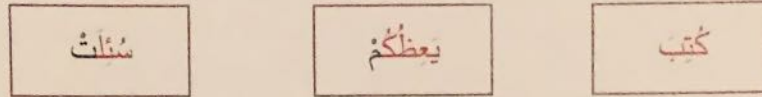 كُتِبَ يَعِظُكُمْ سُئِلَتْ